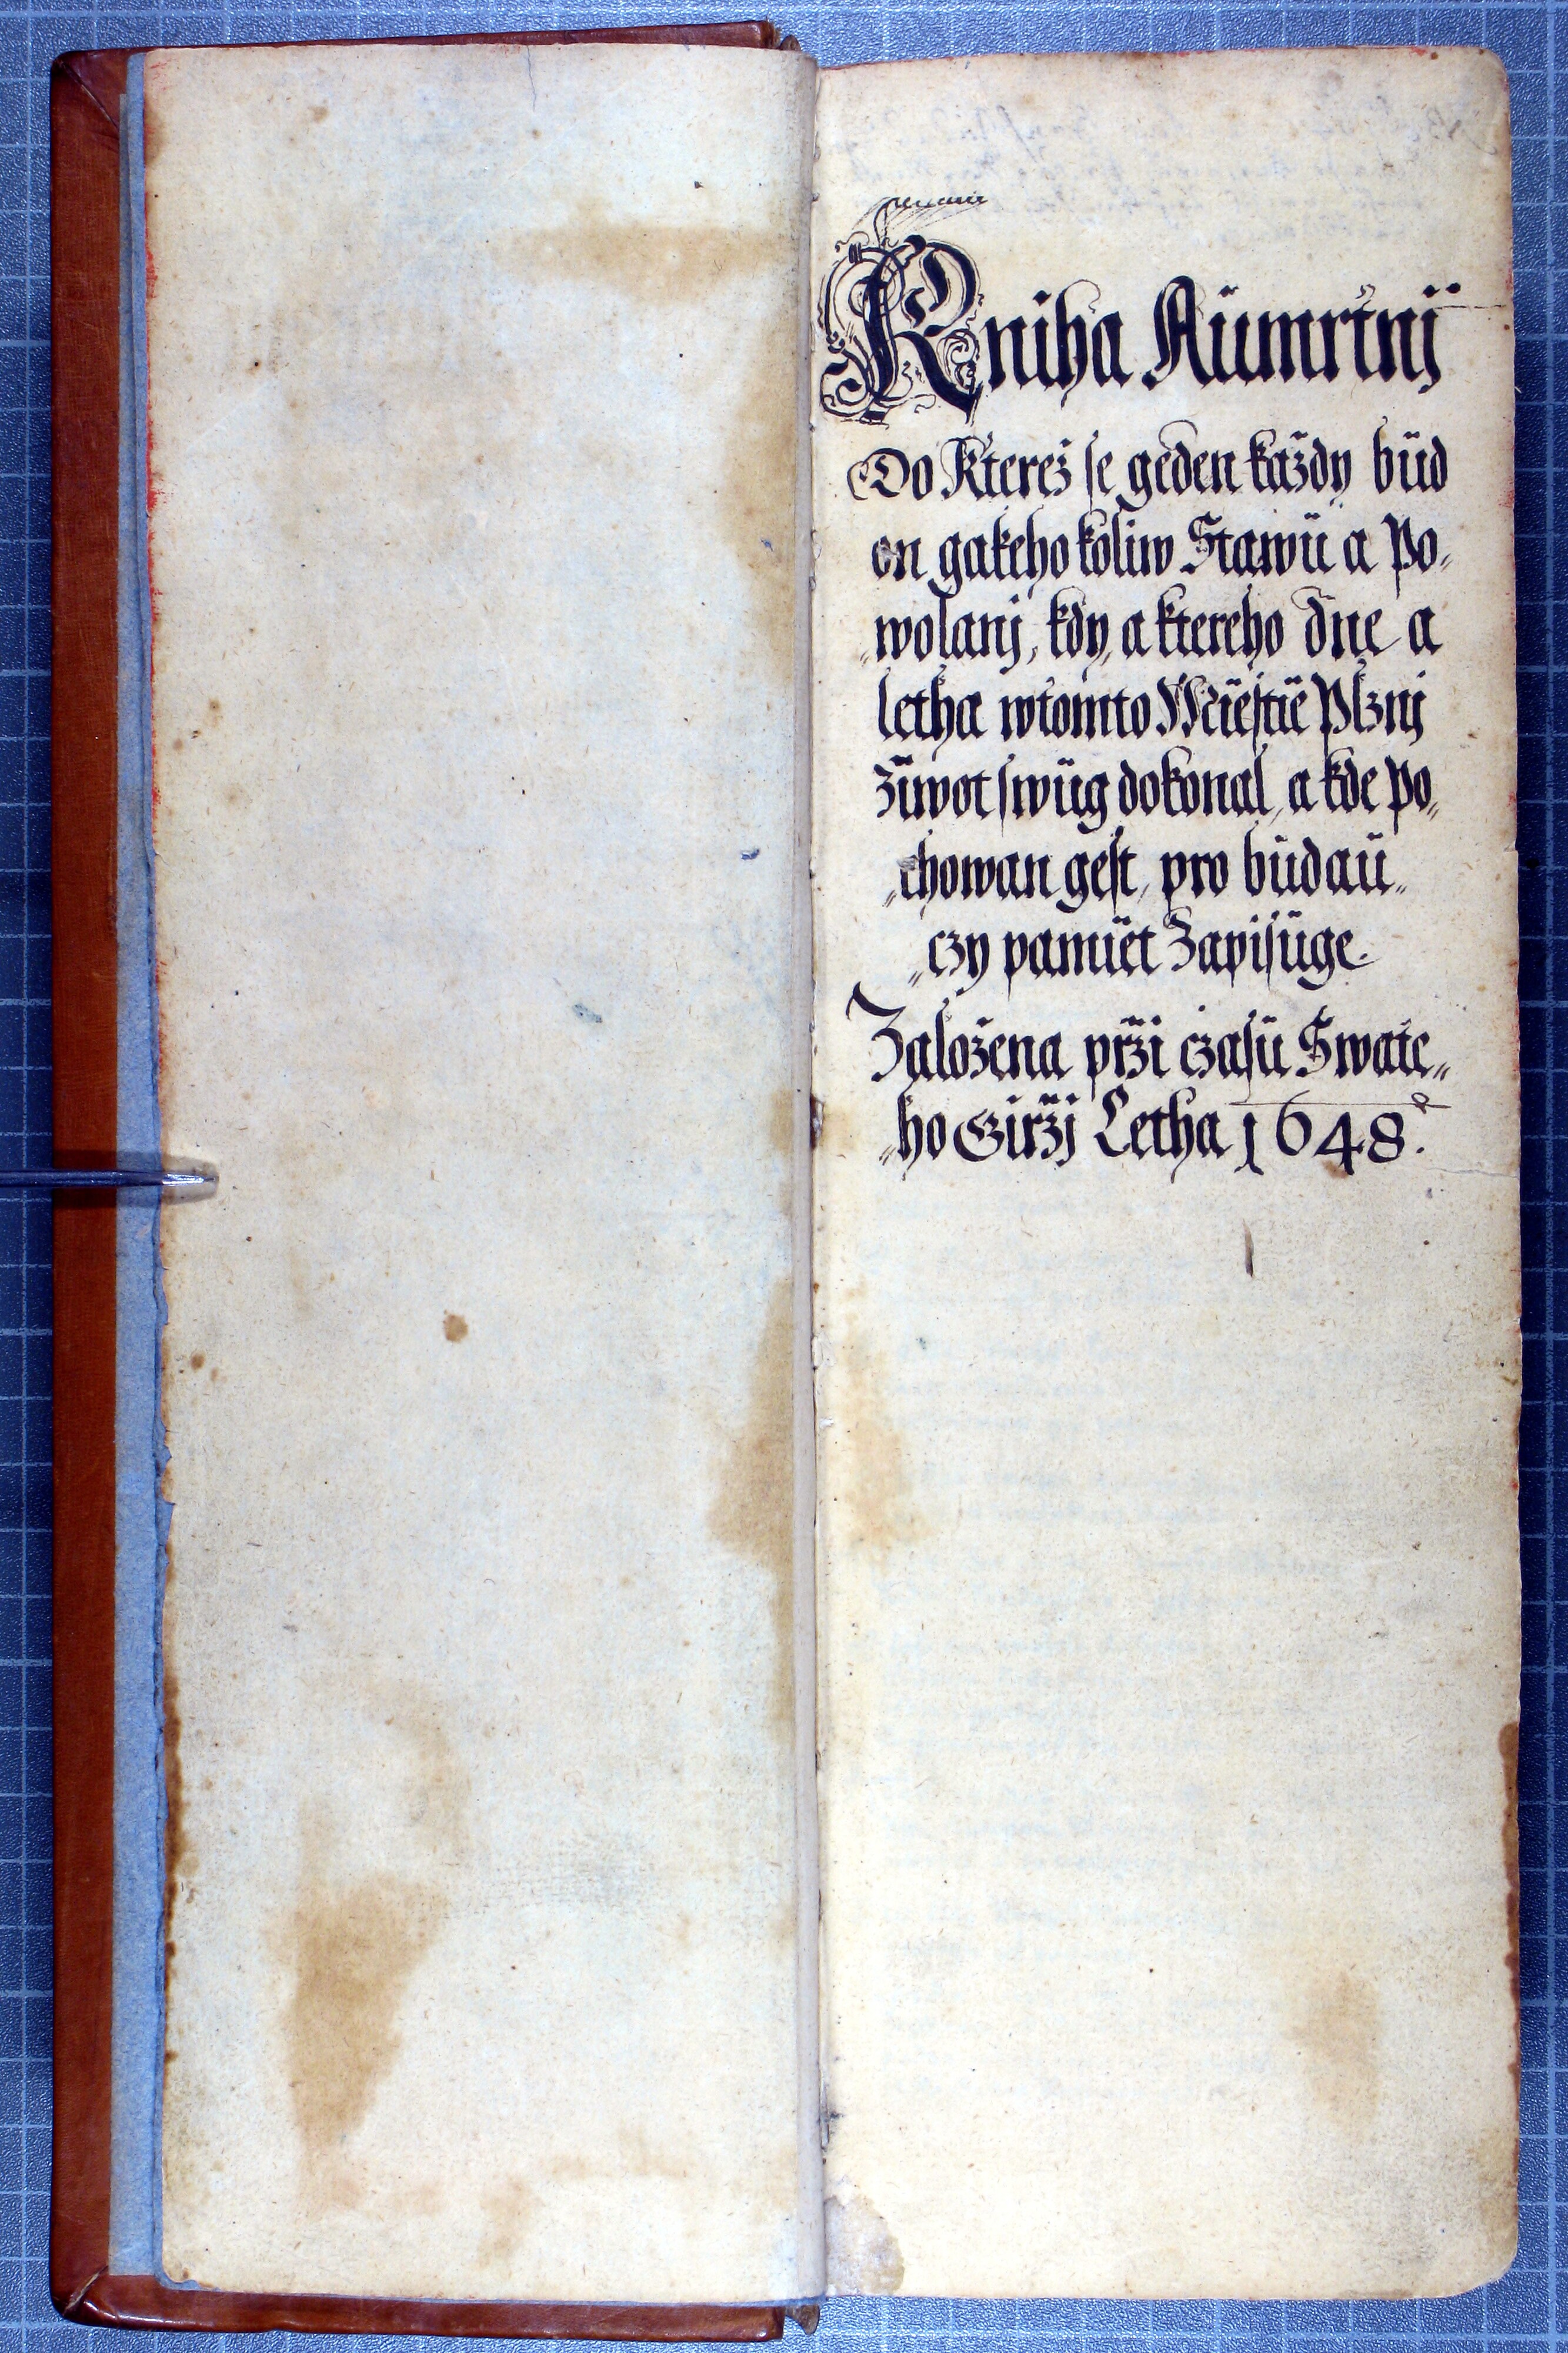 Kniha Aümrtnj
Do Ktereż se geden każdy büd
on gakehokoliw Stawü a Po„
„wolanj, kdy, a ktereho dne a
letha wtomto Miestie Plznj
żiwot swüg dokonal, a kde po„
„chowan gest, pro büdaü„
„czy pamiet Zapisüge.
Założena przi czasü Swate„
„ho Girżj Letha 1648.